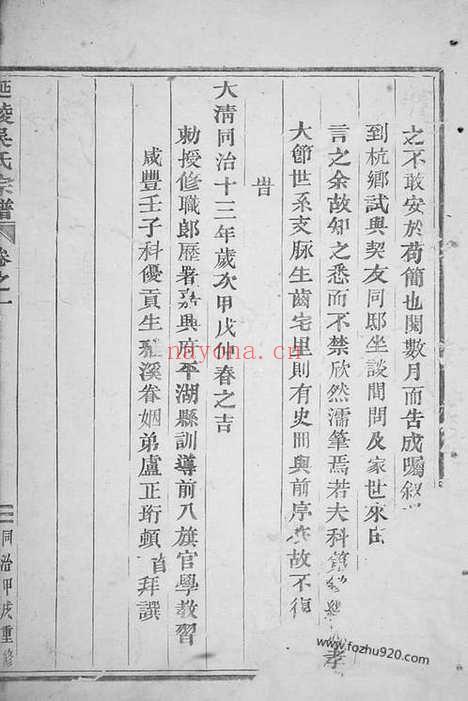 之不敢安於苟簡也閱數月而告成囑叙
到杭鄉試與契友同邸坐談間問及家世來由
言之余故知之悉而不禁欣然濡筆焉若夫科第 孝
大節世系支脉生齒宅里則有史冊與前序在故不復
旹
大清同治十三年歲次甲戌仲春之吉
勅授修職郎歷署嘉興府平湖縣訓導前八旗官學教習
咸豐壬子科優貢生 溪眷姻弟盧正珩頓首拜譔
延陵吳氏宗譜
卷之一
二
同治甲戌重修
nayona.cn
www.fozhu920.com